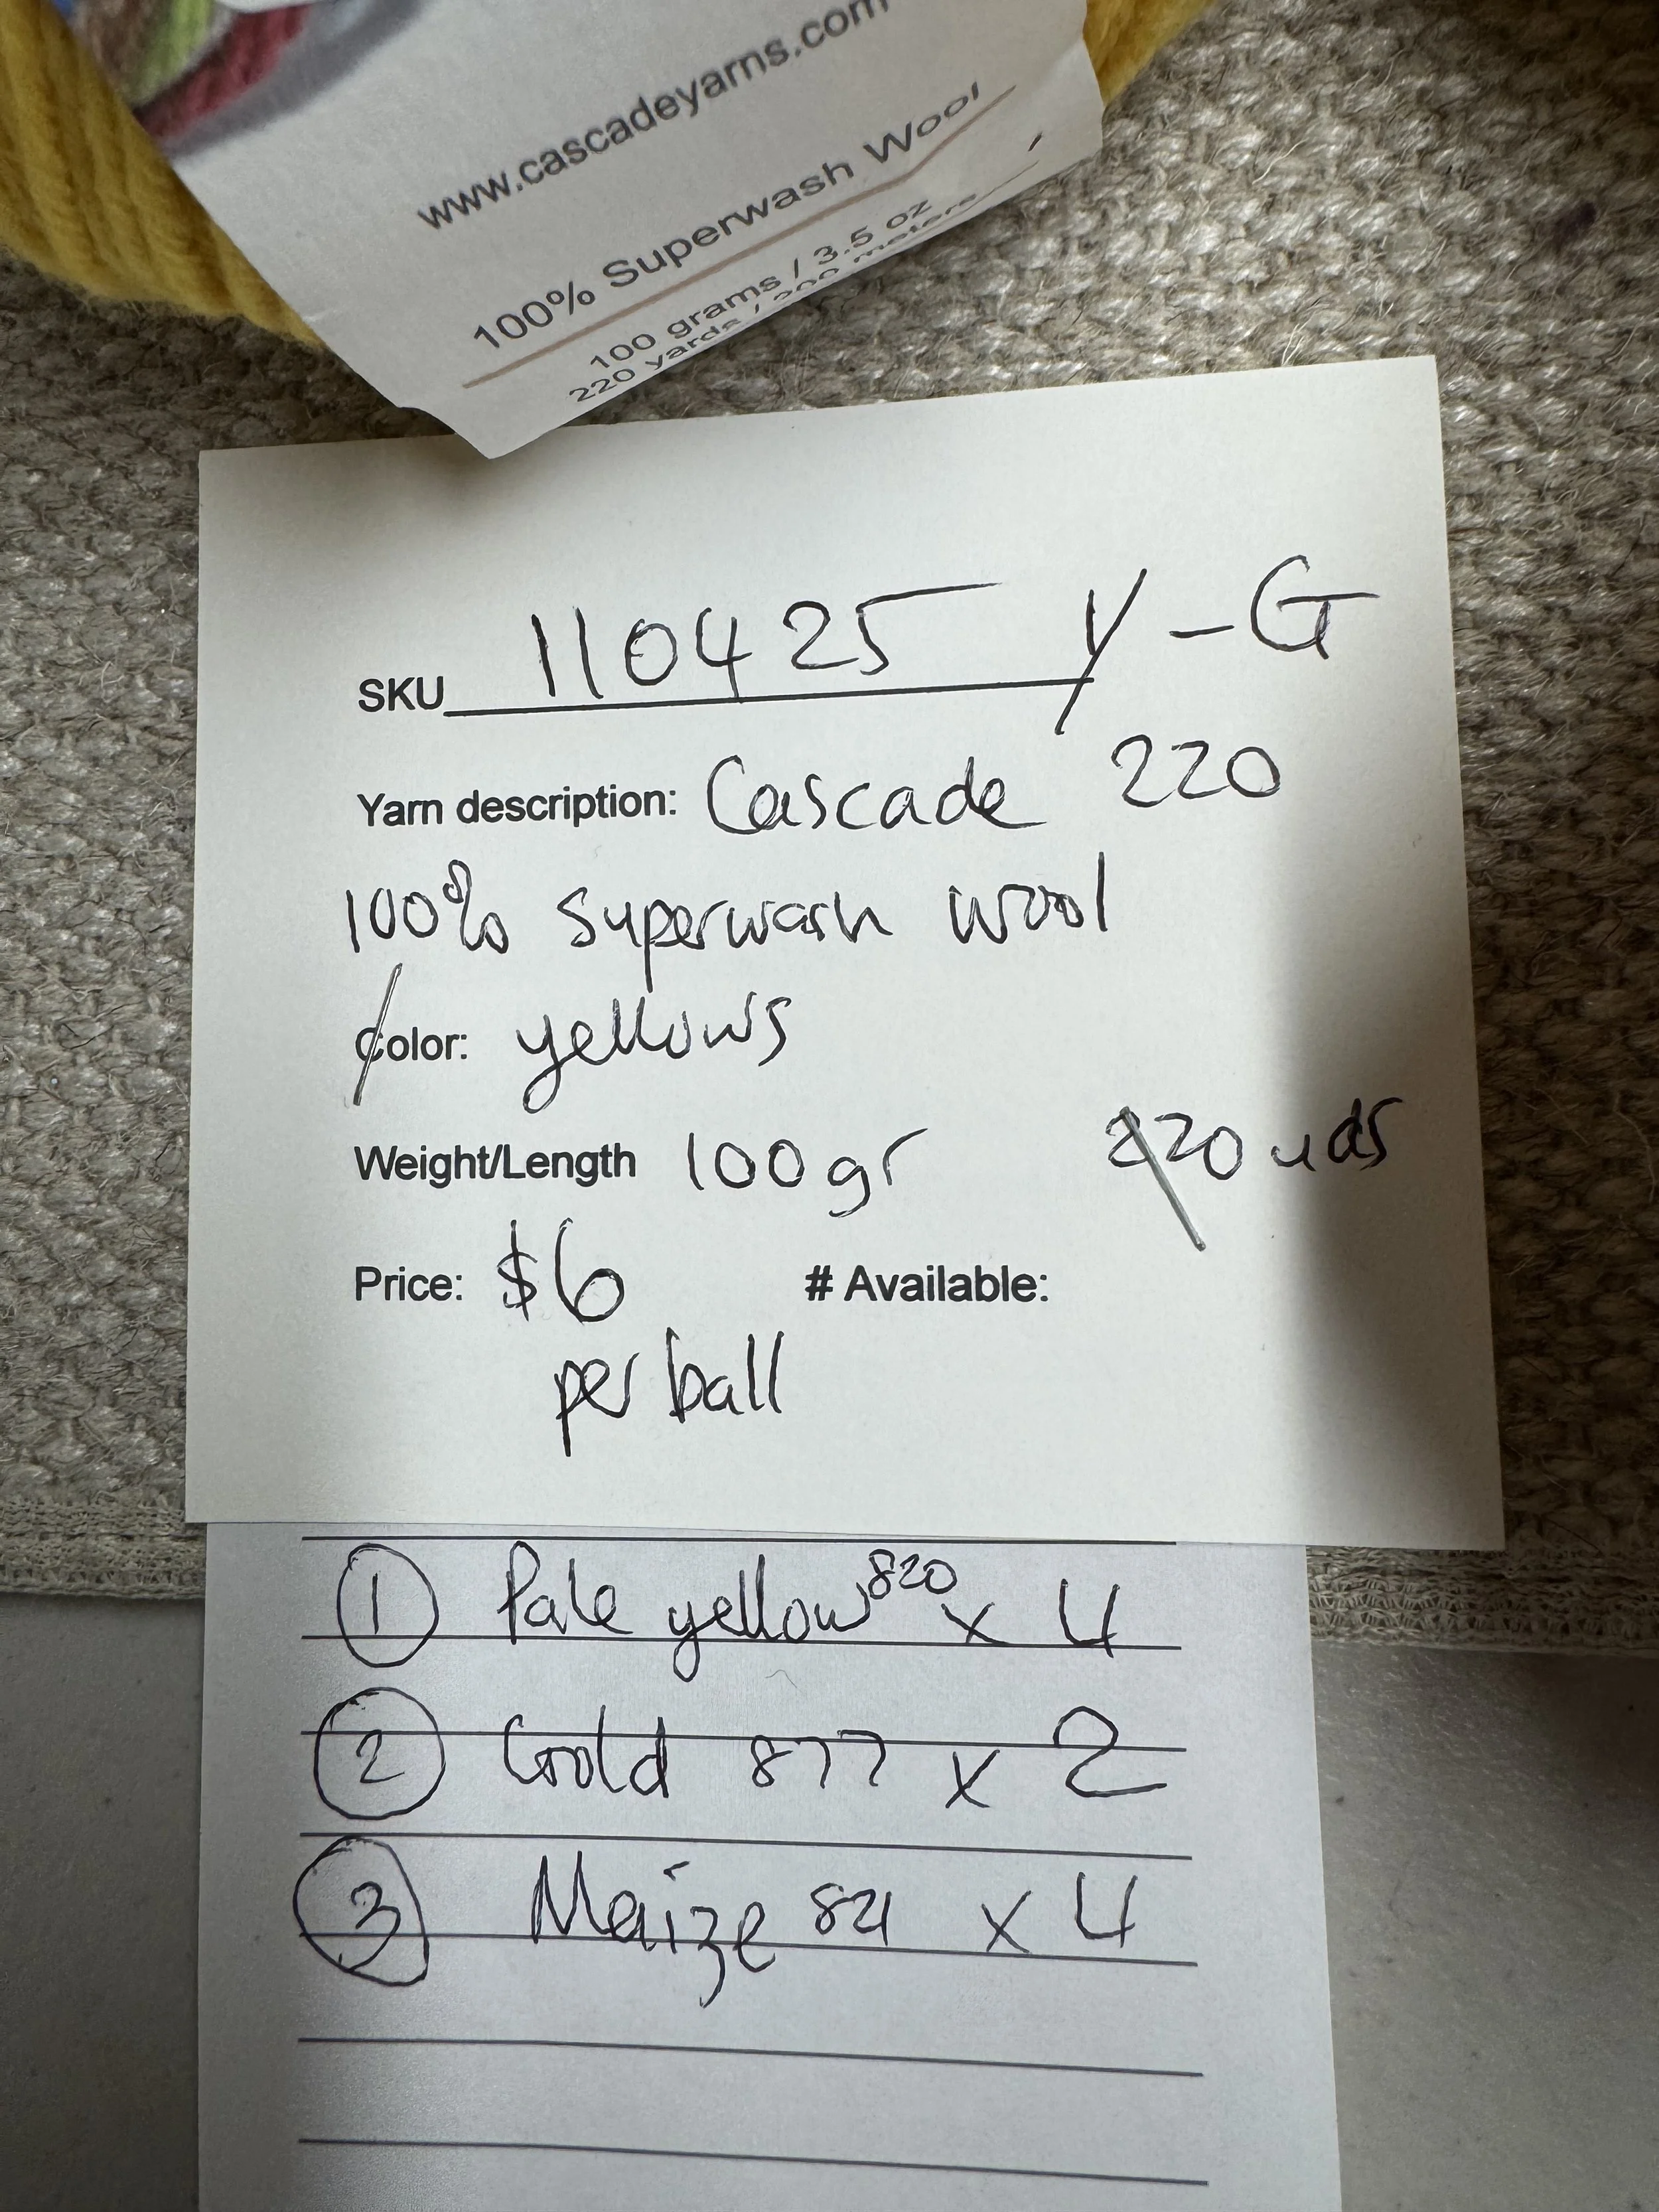 www.cascadeyarns.com
100% Superwash Wool
100 grams / 3.5 oz
220 yards / 200 meters
SKU 110425 Y-G
Yarn description: Cascade 220
100% superwash wool
Color: yellows
Weight/Length 100gr 220 yds
Price: $6 # Available:
per ball
1 Pale yellow 820 x 4
2 Gold 877 x 2
3 Maize 821 x 4